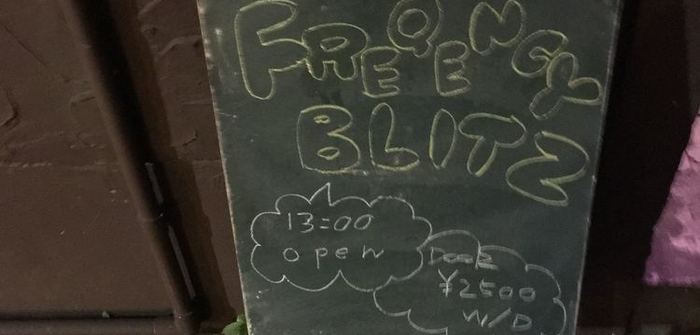 FREQENCY
BLITZ
13:00
open
Door
¥2500
W/D